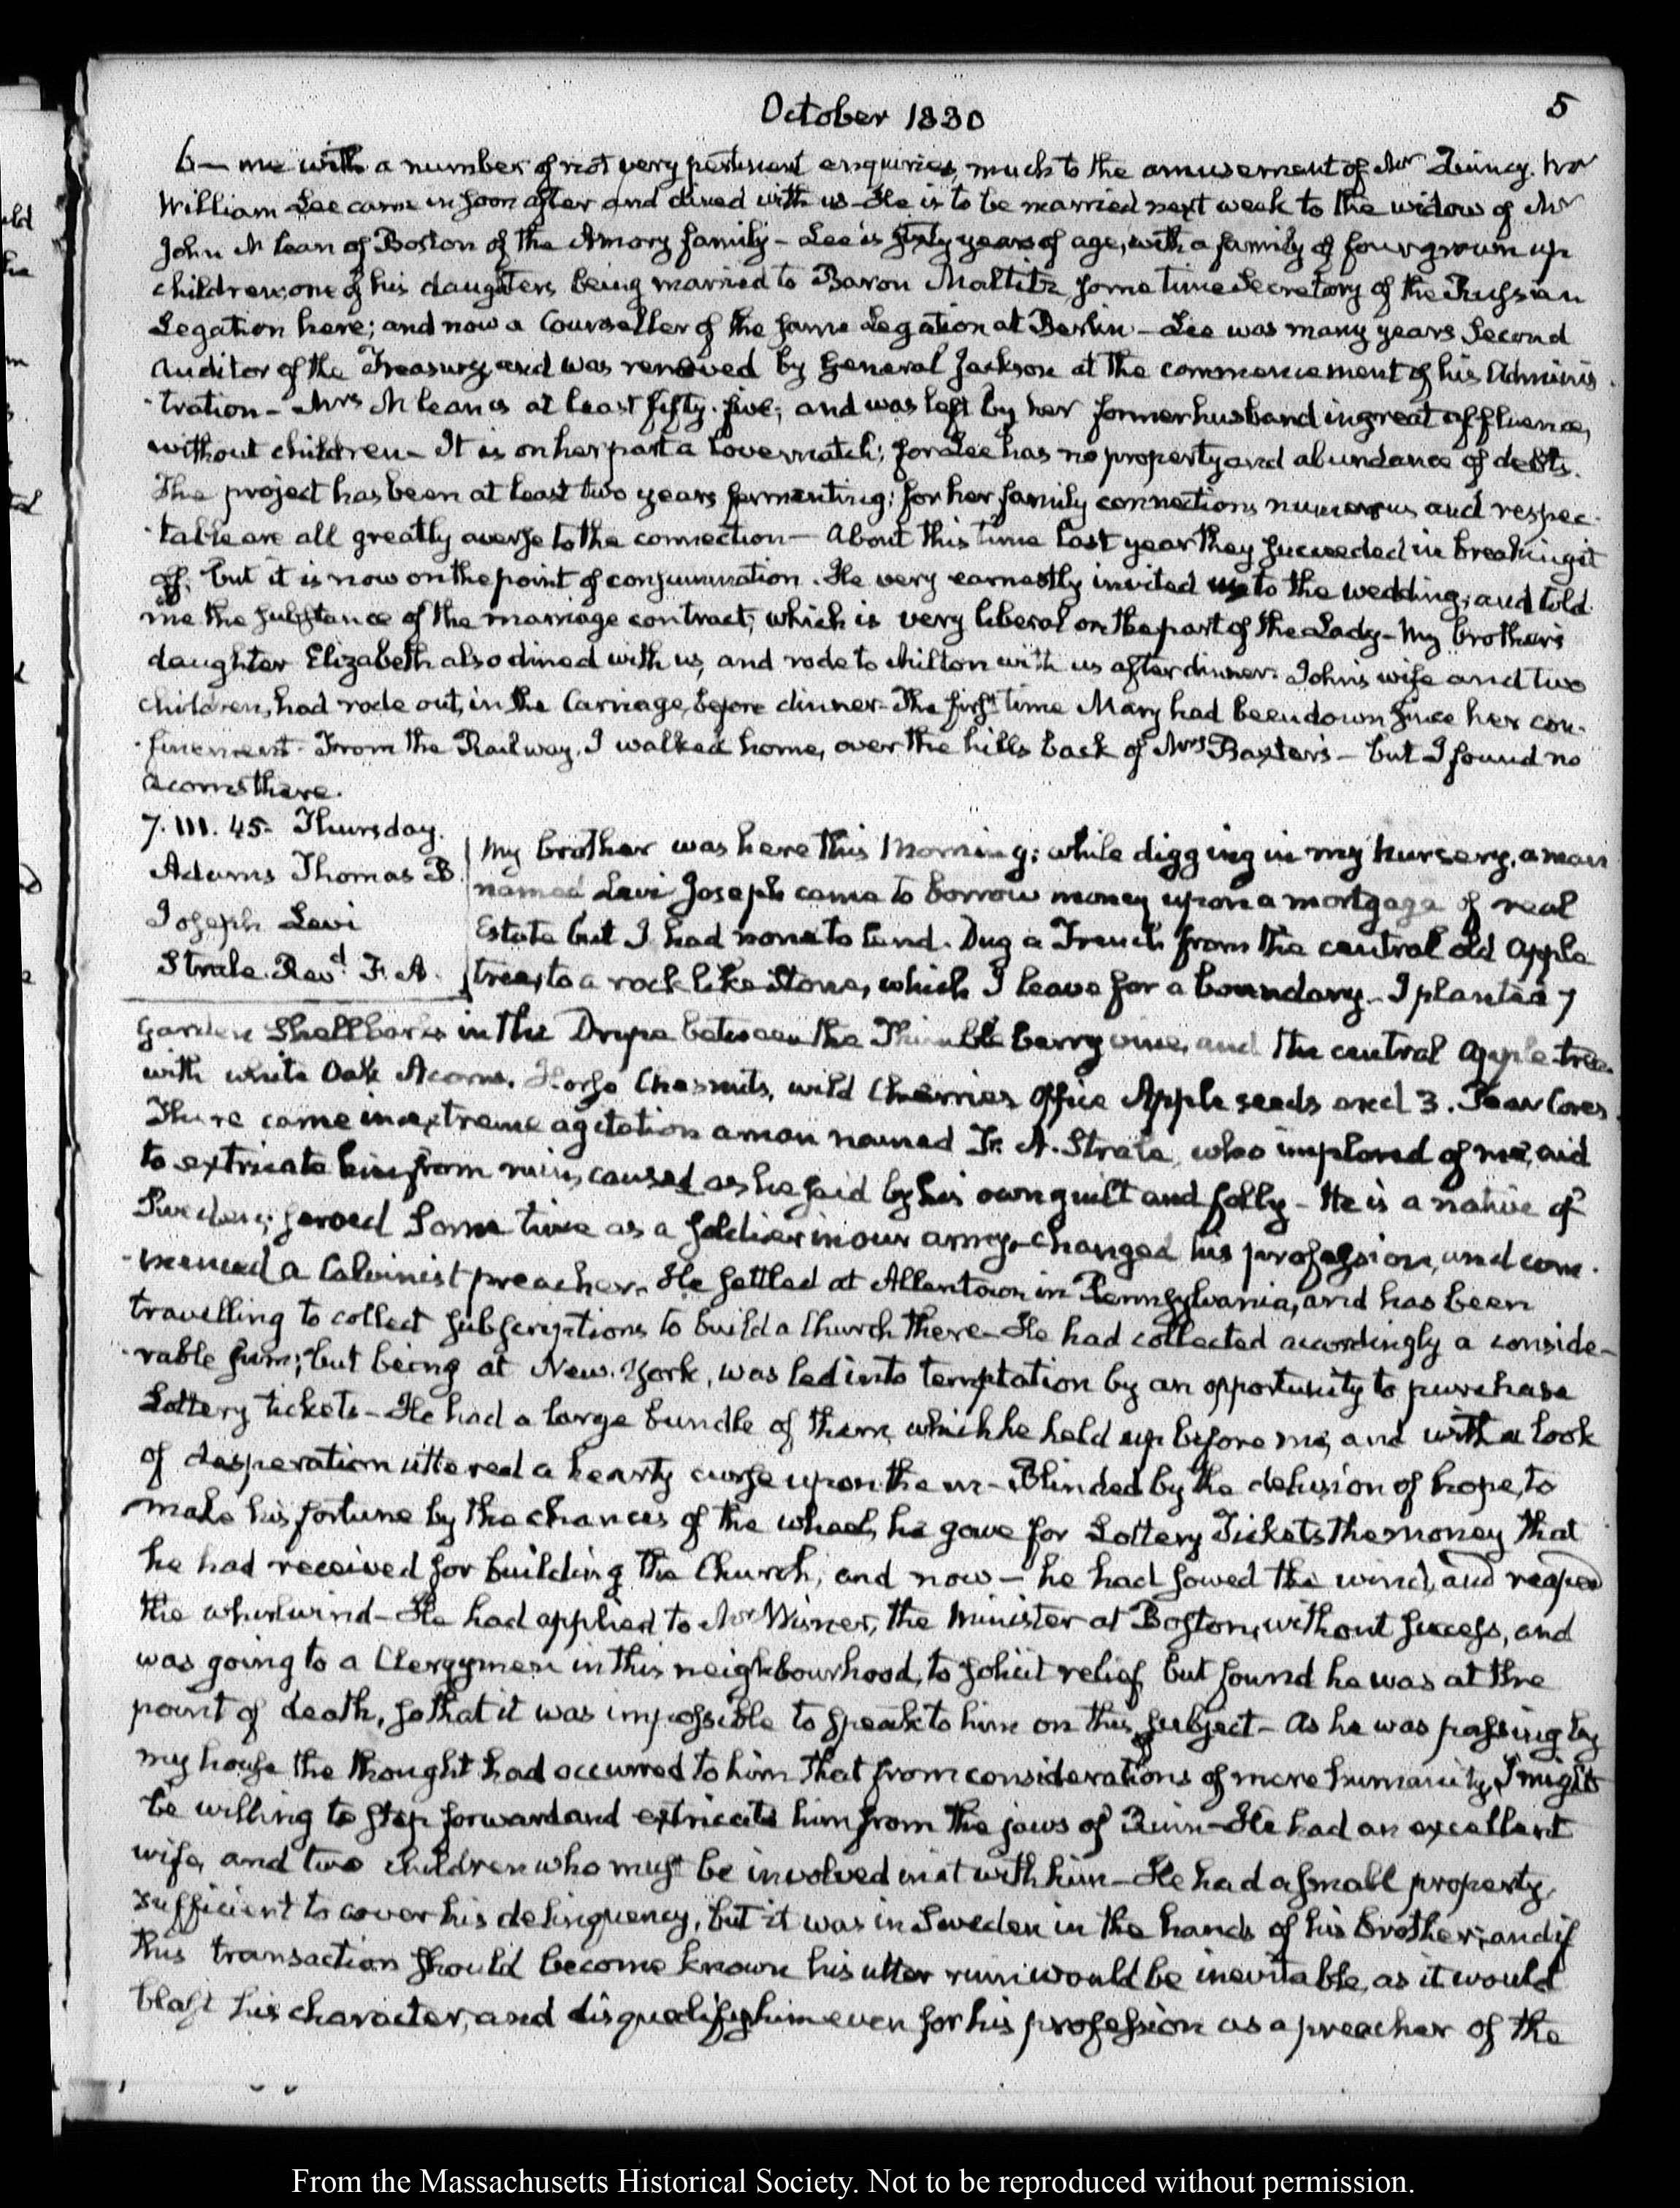 October 1830
5
6— me with a number of not very pertinent enquiries, much to the amusement of Mr Quincy. Mr
William Lee came in soon after and dined with us— He is to be married next week to the widow of Mr
John McLean of Boston of the Amory family— Lee is sixty years of age, with a family of four grown up
children; one of his daughters being married to Baron Maltitz some time Secretary of the Russian
Legation here; and now a Counsellor of the same Legation at Berlin— Lee was many years Second
Auditor of the Treasury, and was removed by General Jackson at the commencement of his Adminis
tration— Mrs McLean is at least fifty-five; and was left by her former husband in great affluence,
without children— It is on her part a love match; for Lee has no property and abundance of debts.
The project has been at least two years fermenting: for her family connections numerous and respec-
-table are all greatly averse to the connection— About this time last year they succeeded in breaking it
off. but it is now on the point of consummation. He very earnestly invited us to the wedding; and told
me the substance of the marriage contract; which is very liberal on the part of the Lady— My brother's
daughter Elizabeth also dined with us, and rode to Milton with us after dinner. John's wife and two
children, had rode out, in the Carriage, before dinner— The first time Mary had been down since her con-
-finement— From the Railway, I walked home, over the hills back of Mrs Baxter's— but I found no
acorns there.
7. III. 45. Thursday.
Adams Thomas B.
Joseph Levi
Strale. Revd. F. A.
My brother was here this Morning; while digging in my nursery, a man
named Levi Joseph came to borrow money upon a mortgage of real
Estate but I had none to lend. Dug a Trench from the central old Apple
tree, to a rock like Stone, which I leave for a boundary— I planted 7
garden Shellbarks in the Drupe between the Thimble berry vine, and the central Apple tree
with white Oak Acorns. Horse Chesnuts, wild Cherries Office Apple seeds and 3. Pear Cores.
There came in extreme agitation a man named F. A. Strale, who implored of me, aid
to extricate him from ruin, caused as he said by his own guilt and folly— He is a native of
Sweden; served some time as a soldier in our army— changed his profession, and com-
-menced a Calvinist preacher. He settled at Allentown in Pennsylvania, and has been
travelling to collect subscriptions to build a Church there— He had collected accordingly a conside-
-rable sum; but being at New-York, was led into temptation by an opportunity to purchase
Lottery tickets— He had a large bundle of them, which he held up before me, and with a look
of desperation uttered a hearty curse upon them— Blinded by the delusion of hope, to
make his fortune by the chances of the wheel, he gave for Lottery Tickets the money that
he had received for building the Church, and now— he had sowed the wind, and reaped
the whirlwind— He had applied to Mr Wisner, the Minister at Boston, without success, and
was going to a Clergyman in this neighbourhood, to solicit relief, but found he was at the
point of death, so that it was impossible to speak to him on this subject— As he was passing by
my house the thought had occurred to him that from considerations of mere humanity, I might
be willing to step forward and extricate him from the jaws of Ruin— He had an excellent
wife, and two children who must be involved in it with him— He had a small property,
sufficient to cover his delinquency, but it was in Sweden in the hands of his brother; and if
this transaction should become known his utter ruin would be inevitable, as it would
blast his character, and disqualify him even for his profession as a preacher of the
From the Massachusetts Historical Society. Not to be reproduced without permission.